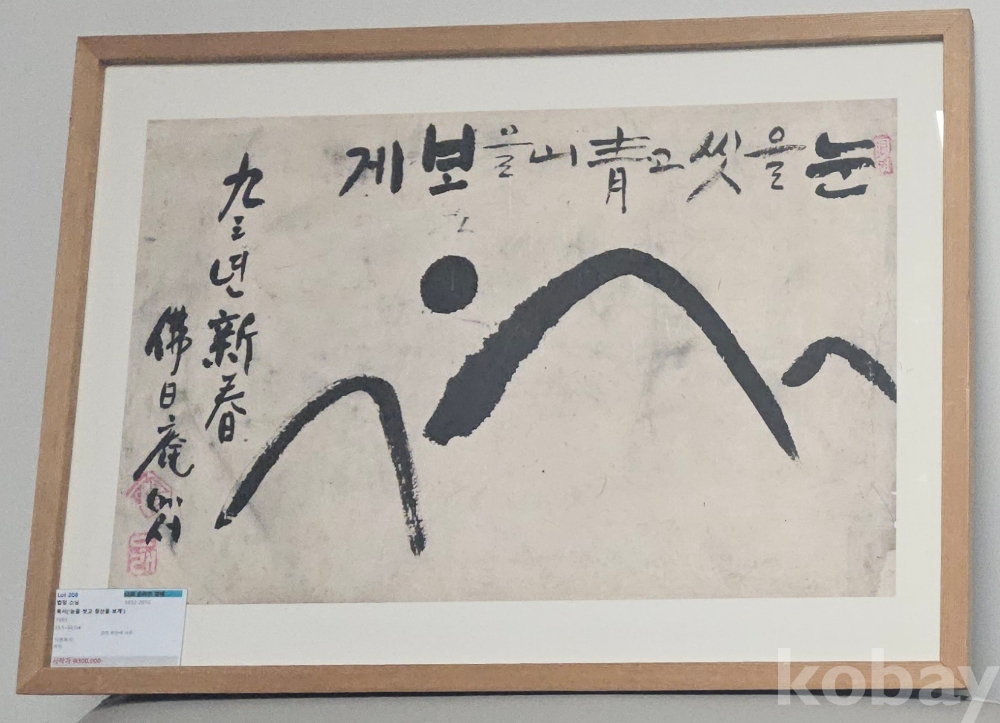 눈을 씻고 靑山을 보게
九三년 新春
佛日庵에서
Lot 208
법정 스님
묵서('눈을 씻고 청산을 보게')
1993
시작가 ₩500,000
kobay